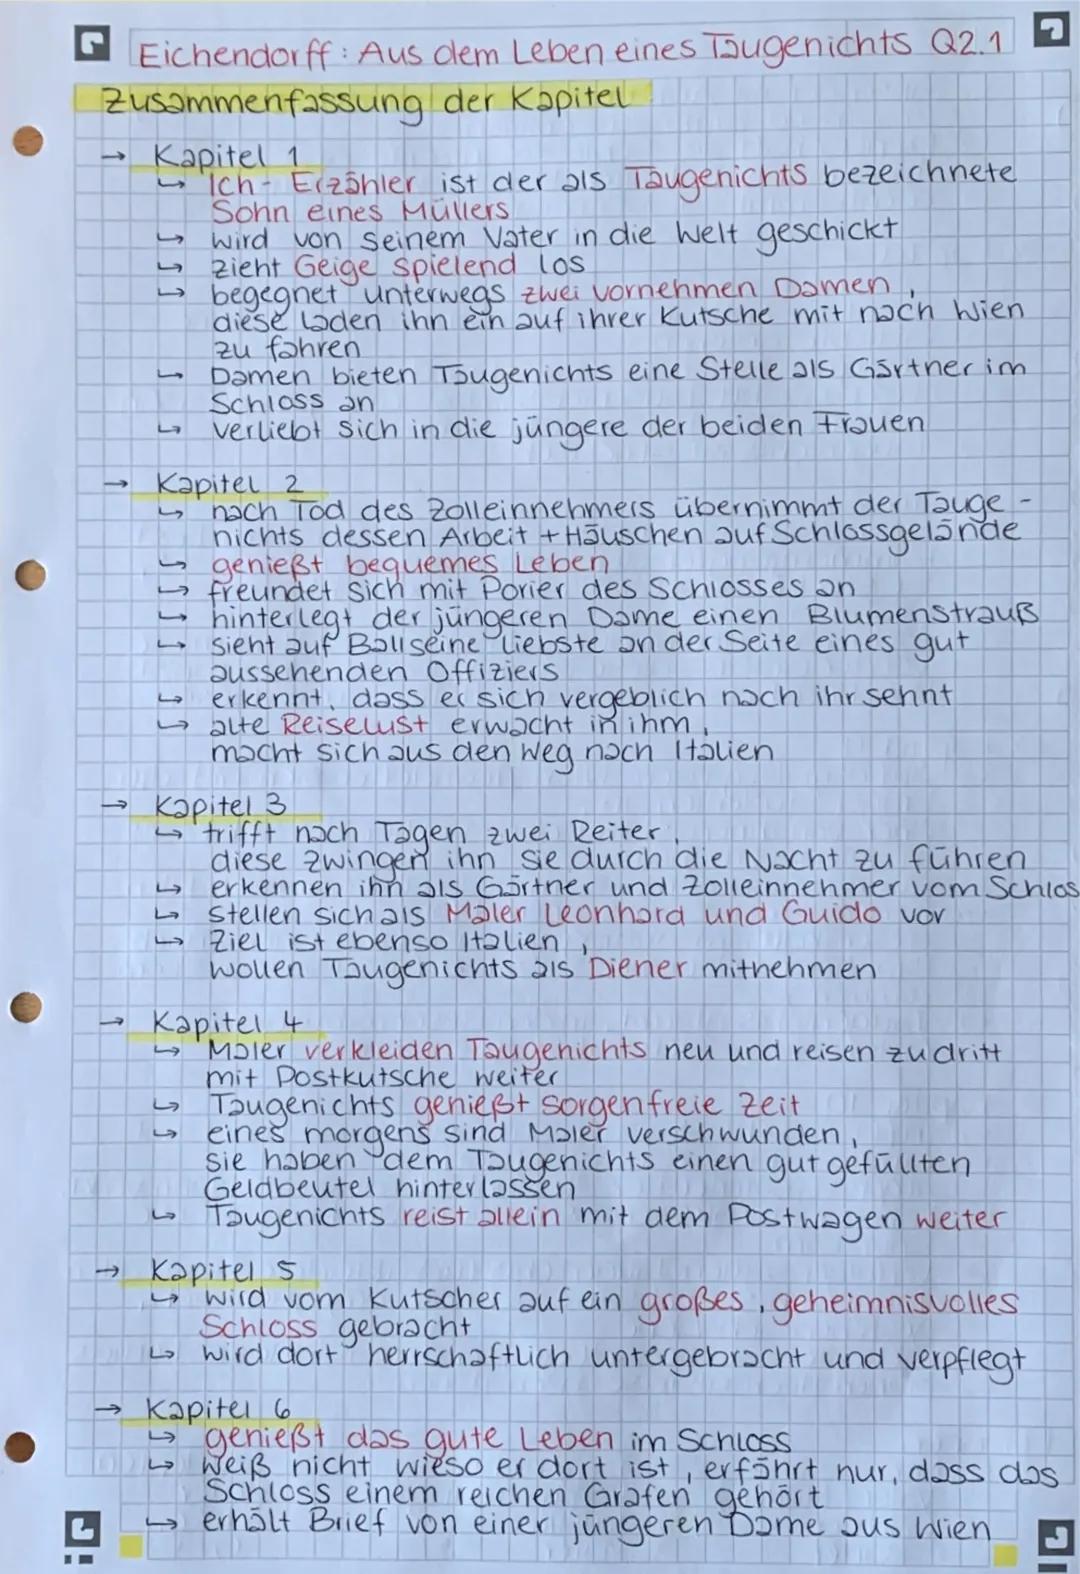 Eichendorff: Aus dem Leben eines Taugenichts Q2.1
Zusammenfassung der Kapitel
→ Kapitel 1
↳ Ich-Erzähler ist der als Taugenichts bezeichnete
Sohn eines Müllers
↳ wird von seinem Vater in die Welt geschickt
↳ zieht Geige spielend los
↳ begegnet unterwegs zwei vornehmen Damen,
diese laden ihn ein auf ihrer Kutsche mit nach Wien
zu fahren
↳ Damen bieten Taugenichts eine Stelle als Gärtner im
Schloss an
↳ verliebt sich in die jüngere der beiden Frauen
→ Kapitel 2
↳ nach Tod des Zolleinnehmers übernimmt der Tauge-
nichts dessen Arbeit + Häuschen auf Schlossgelände
↳ genießt bequemes Leben
↳ freundet sich mit Porier des Schlosses an
↳ hinterlegt der jüngeren Dame einen Blumenstrauß
↳ sieht auf Ball seine liebste an der Seite eines gut
aussehenden Offiziers
↳ erkennt, dass er sich vergeblich nach ihr sehnt
↳ alte Reiselust erwacht in ihm,
macht sich aus den Weg nach Italien
→ Kapitel 3
↳ trifft nach Tagen zwei Reiter,
diese zwingen ihn sie durch die Nacht zu führen
↳ erkennen ihn als Gärtner und Zolleinnehmer vom Schlos
↳ stellen sich als Maler Leonhard und Guido vor
↳ Ziel ist ebenso Italien,
wollen Taugenichts als Diener mitnehmen
→ Kapitel 4
↳ Maler verkleiden Taugenichts neu und reisen zu dritt
mit Postkutsche weiter
↳ Taugenichts genießt sorgenfreie Zeit
↳ eines morgens sind Maler verschwunden,
sie haben dem Taugenichts einen gut gefüllten
Geldbeutel hinterlassen
↳ Taugenichts reist allein mit dem Postwagen weiter
→ Kapitel 5
↳ wird vom Kutscher auf ein großes, geheimnisvolles
Schloss gebracht
↳ wird dort herrschaftlich untergebracht und verpflegt
→ Kapitel 6
↳ genießt das gute Leben im Schloss
↳ weiß nicht wieso er dort ist, erfährt nur, dass das
Schloss einem reichen Grafen gehört
↳ erhält Brief von einer jüngeren Dame aus Wien